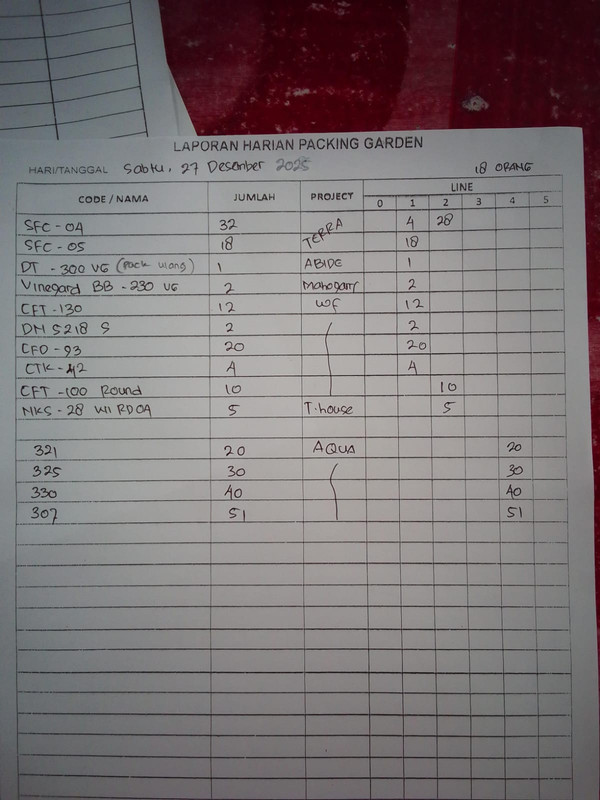 LAPORAN HARIAN PACKING GARDEN
HARI/TANGGAL Sabtu, 27 Desember 2025 18 ORANG
CODE / NAMA JUMLAH PROJECT LINE
0 1 2 3 4 5
SFC - 04 32 TERRA 4 28
SFC - 05 18 18
DT - 300 VG (pack ulang) 1 ABIDE 1
Vinegard BB - 230 VG 2 Mahogany 2
CFT - 130 12 WF 12
DM 5218 S 2 2
CFO - 93 20 20
CTK - 42 4 4
CFT - 100 Round 10 10
NKS - 28 WIRDOA 5 T.house 5
321 20 AQUA 20
325 30 30
330 40 40
307 51 51